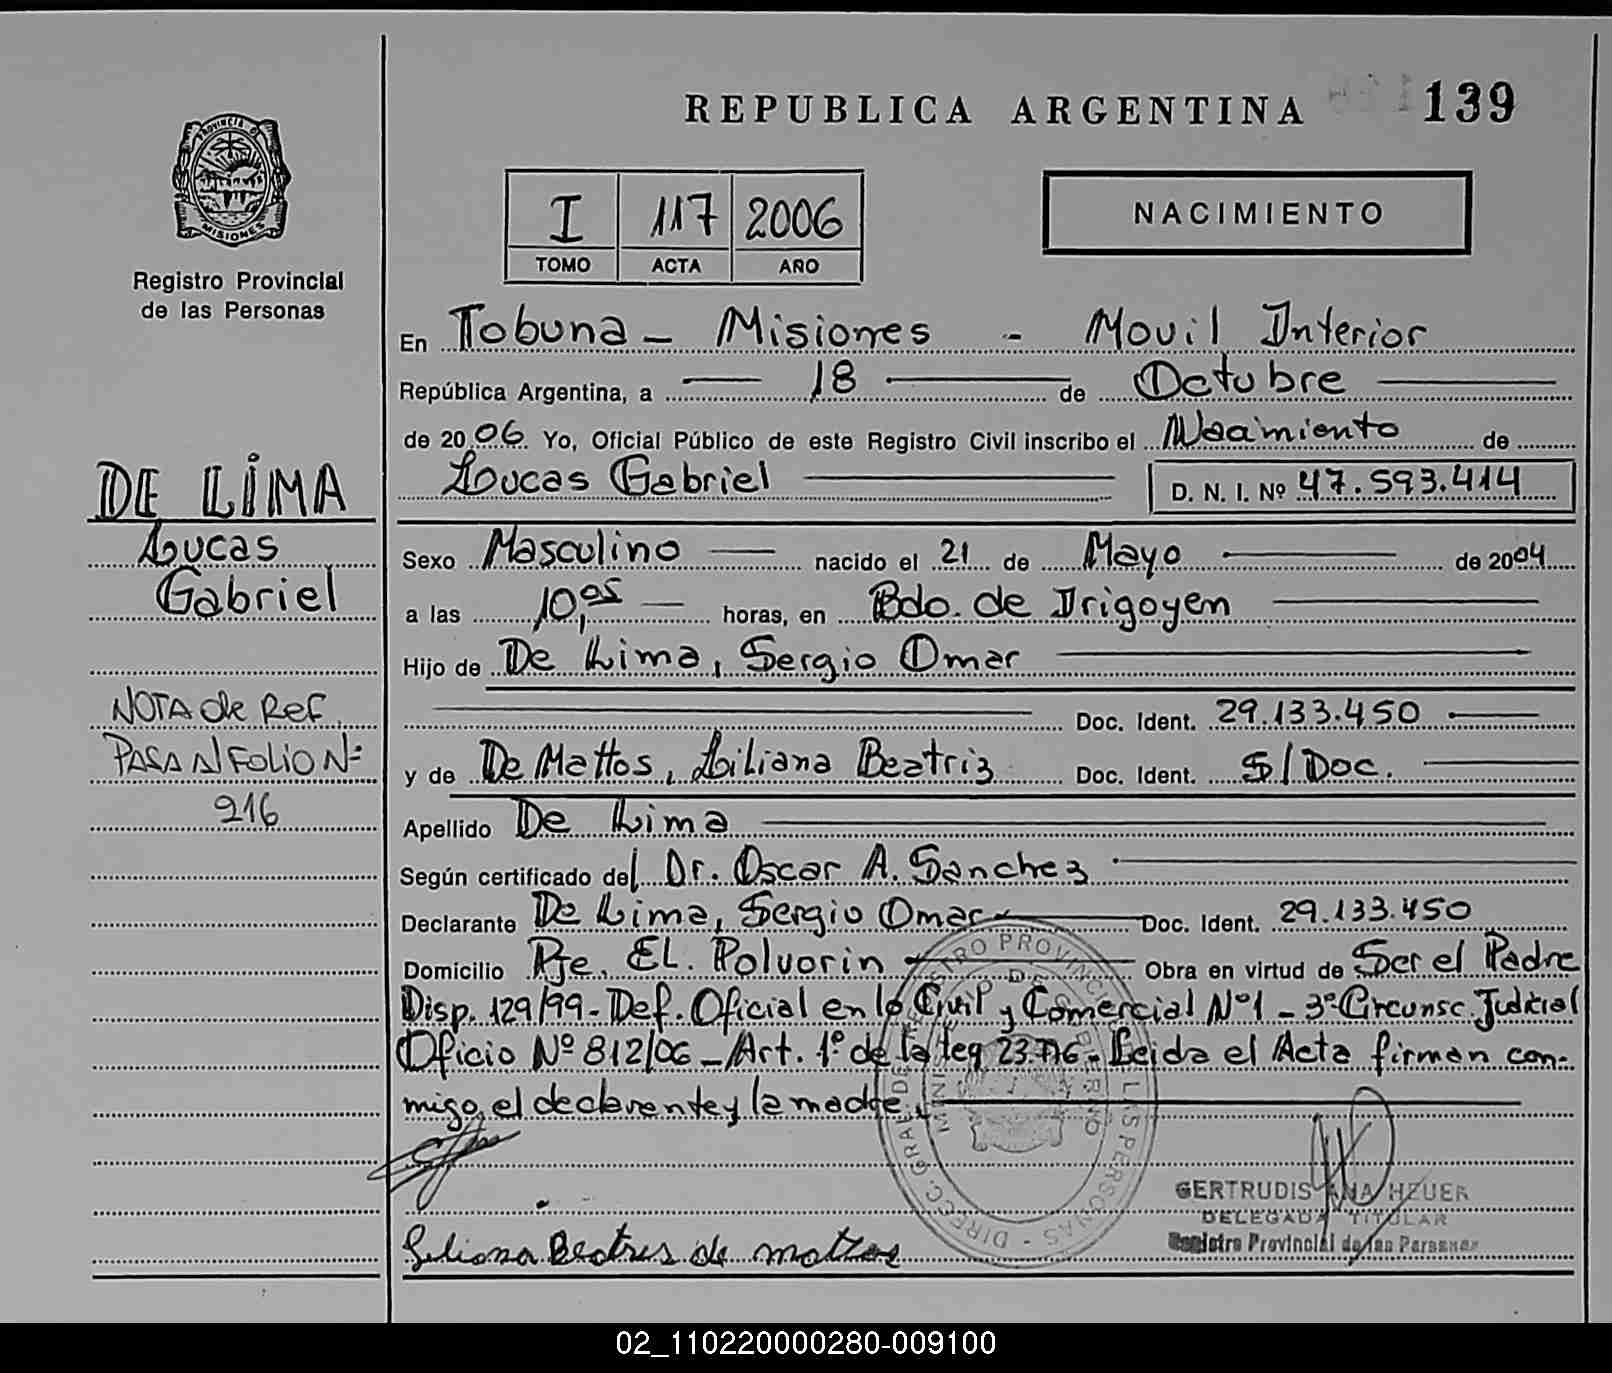 REPUBLICA ARGENTINA 139
PROVINCIA DE
MISIONES
Registro Provincial
de las Personas
I 117 2006
TOMO ACTA AÑO
NACIMIENTO
En Tobuna - Misiones - Movil Interior
República Argentina, a 18 de Octubre
de 2006. Yo, Oficial Público de este Registro Civil inscribo el Nacimiento de
Lucas Gabriel D. N. I. Nº 47.593.414
DE LIMA
Lucas
Gabriel
Sexo Masculino nacido el 21 de Mayo de 2004
a las 10,05 horas, en Bdo. de Irigoyen
Hijo de De Lima, Sergio Omar
Doc. Ident. 29.133.450
y de De Mattos, Liliana Beatriz Doc. Ident. S/Doc.
NOTA de REF.
PASA N FOLIO Nº
916
Apellido De Lima
Según certificado del Dr. Oscar A. Sanchez
Declarante De Lima, Sergio Omar Doc. Ident. 29.133.450
Domicilio Pje. EL. Polvorin Obra en virtud de Ser el Padre
Disp. 129/99 - Def. Oficial en lo Civil y Comercial Nº1 - 3º Circunsc. Judicial
Oficio Nº 812/06 - Art. 1º de la ley 23.776 - Leida el Acta firman con-
migo, el declarante y la madre.
Liliana Beatris de mattos
GERTRUDIS ANA HEUER
DELEGADA TITULAR
Registro Provincial de las Personas
02_110220000280-009100